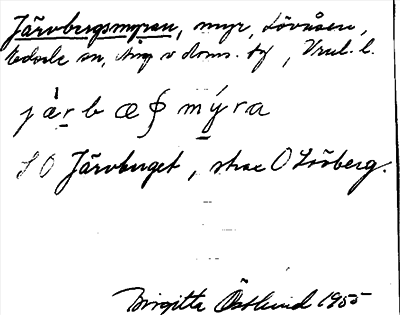 Järvbergsmyran, myr, Lövåsen,
Edsele sn, Ång v doms. by, Vrul. l.
järbæʂmýra
S O Järvberget, strax O Lövberg.
Birgitta Östlund 1955